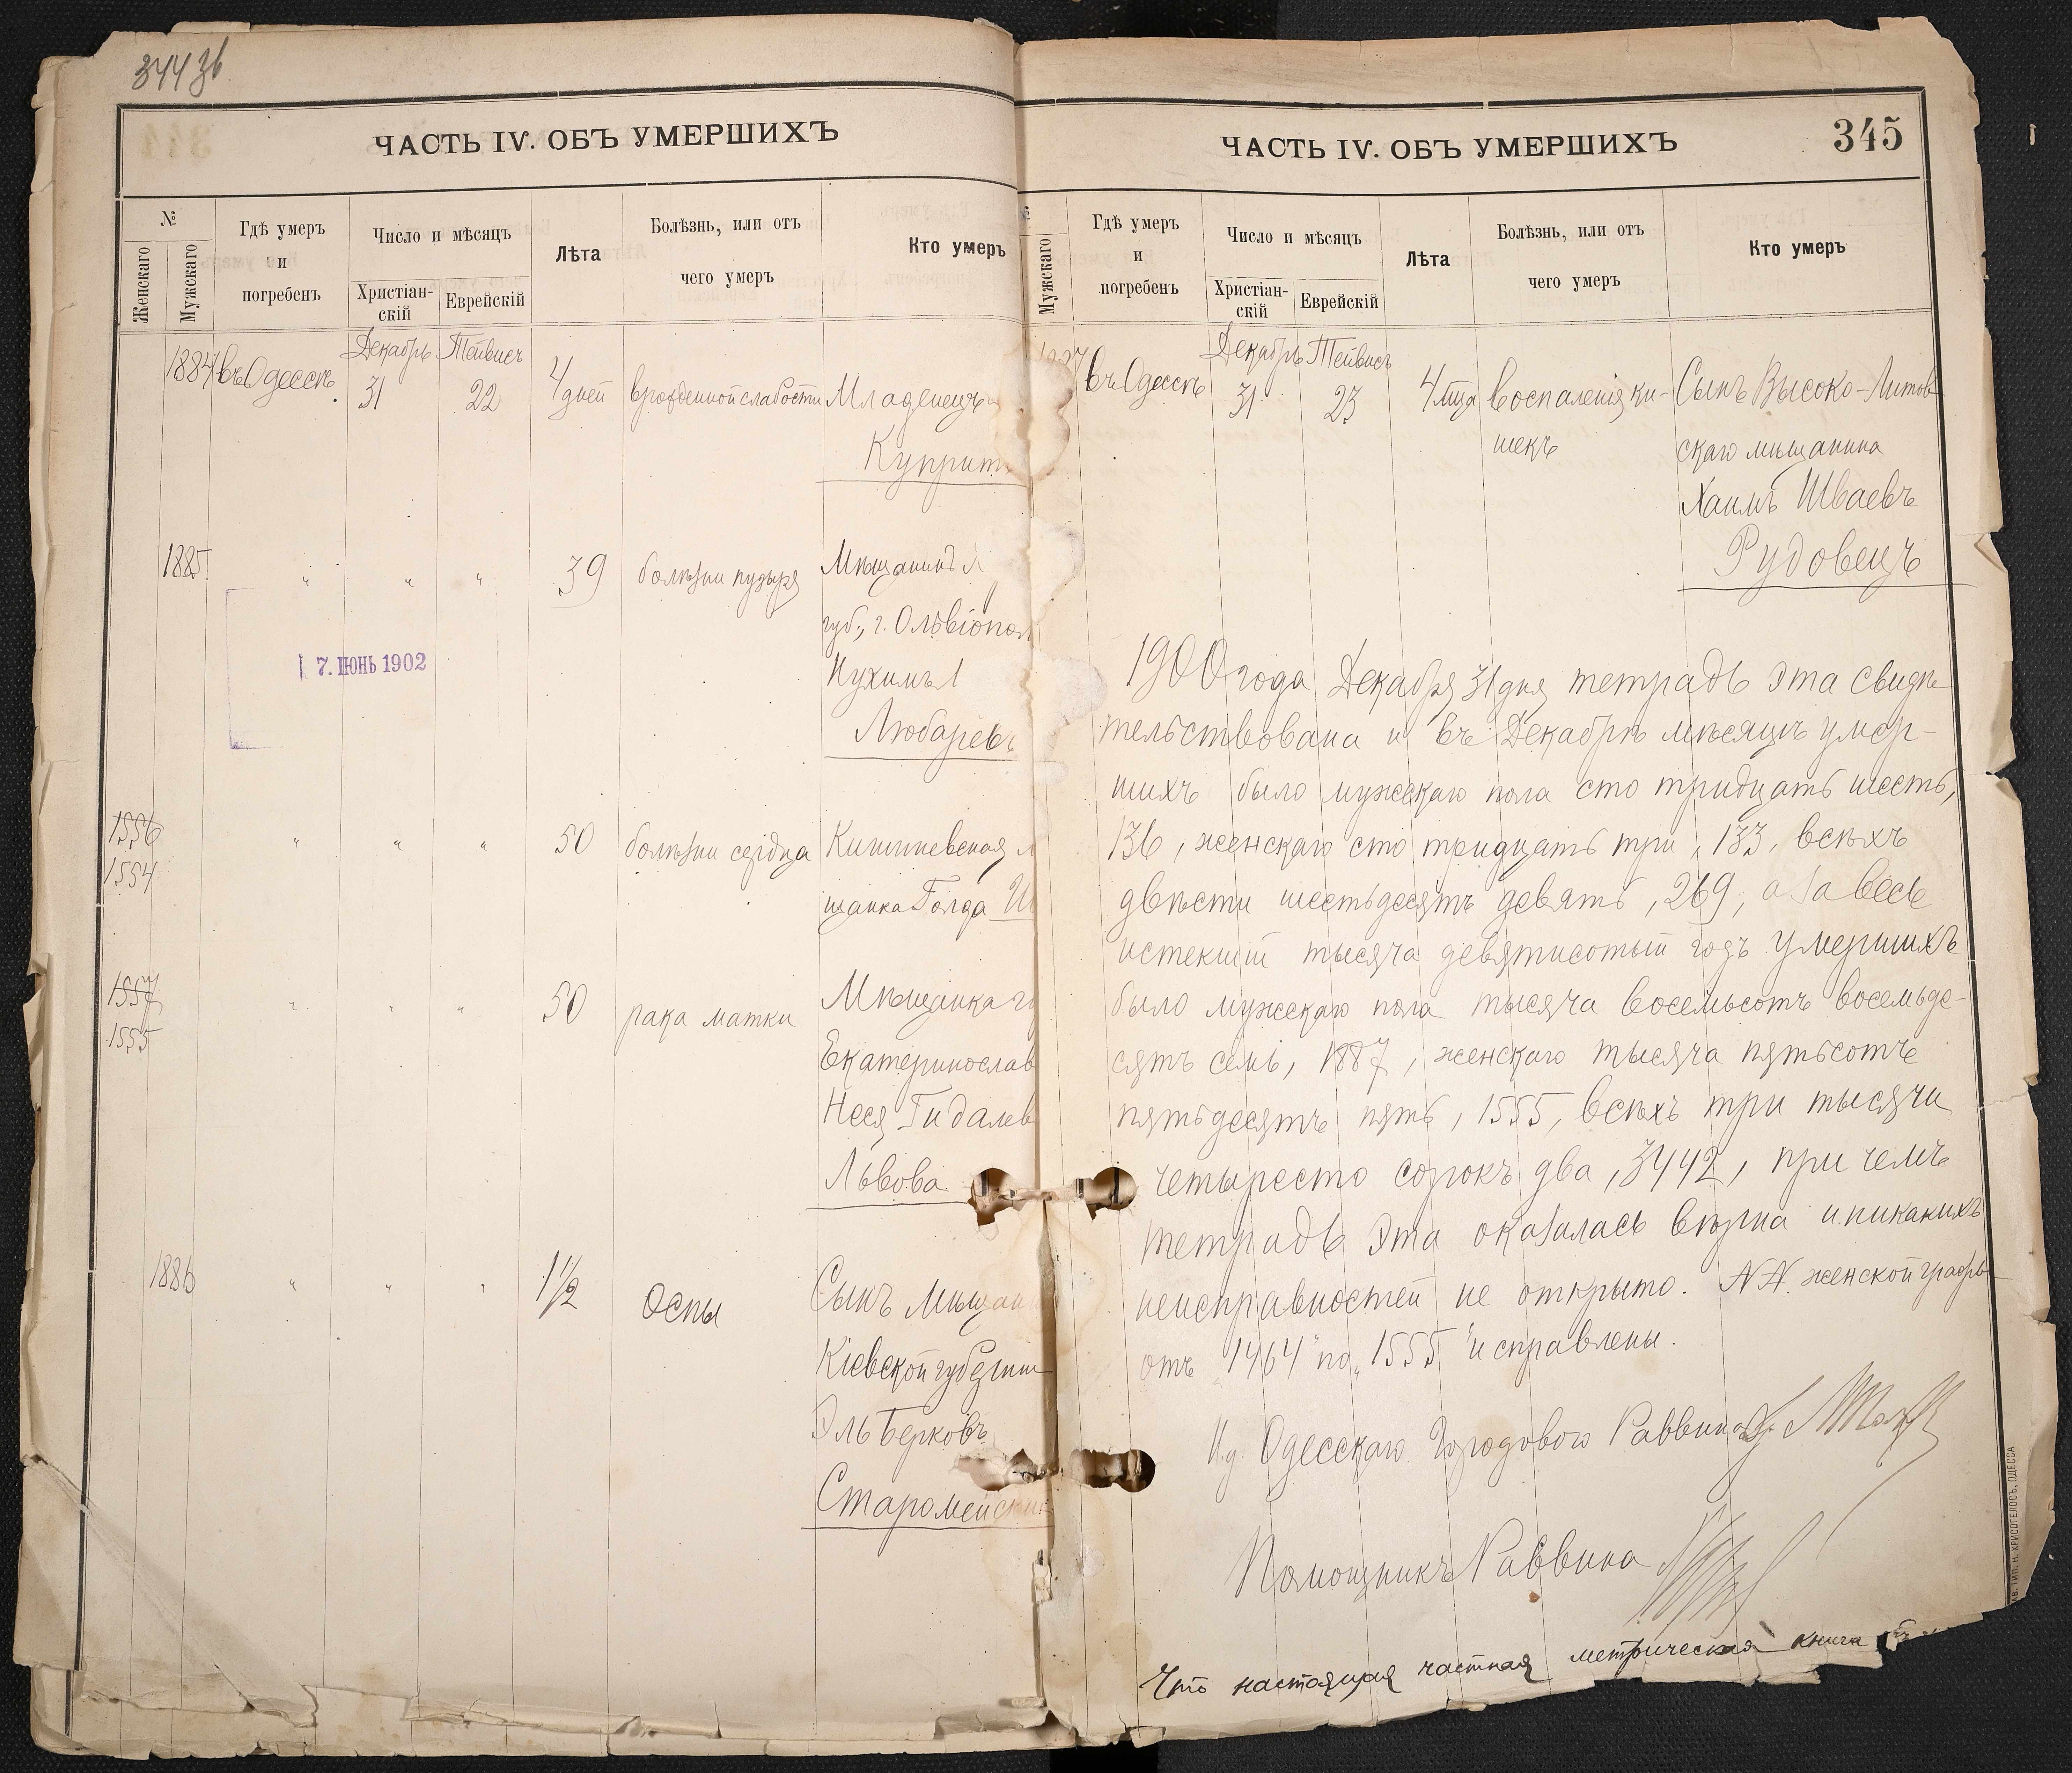 344 зв
ЧАСТЬ IV. ОБЪ УМЕРШИХЪ
№
Женскаго
Мужскаго
Гдѣ умеръ
и
погребенъ
Число и мѣсяцъ
Христіан-
скій
Еврейскій
Лѣта
Болѣзнь, или отъ
чего умеръ
Кто умеръ
Декабрь Тейвисъ
1884 въ Одессѣ 31 22 4 дней врожденной слабости Младенецъ
Куприт
1885 " " " 39 болѣзни пузыря Мѣщанинъ
губ., г. Ольвіопол
Нухимъ
Любарев
7. ІЮНЬ 1902
1556 " " " 50 болѣзни сердца Кишиневская
1554 щанка Голда
1557 " " " 50 рака матки Мѣщанка
1555
Екатеринослав
Неся Гидалев
Львова
1886 " " " 1½ Оспы Сынъ мѣщан
Кіевской губерніи
Эль Берковъ
Старомейский
ЧАСТЬ IV. ОБЪ УМЕРШИХЪ
345
Мужскаго
Гдѣ умеръ
и
погребенъ
Число и мѣсяцъ
Христіан-
скій
Еврейскій
Лѣта
Болѣзнь, или отъ
чего умеръ
Кто умеръ
Декабрь Тейвисъ
1887 въ Одессѣ 31 23 4 мца воспаленія ки- Сынъ Высоко-Литов
шекъ скаго мѣщанина
Хаимъ Шваевъ
Рудовецъ
1900 года Декабря 31 дня тетрадь эта свидѣ
тельствована и въ Декабрѣ мѣсяцѣ умер-
шихъ было мужскаго пола сто тридцать шесть,
136, женскаго сто тридцать три, 133, всѣхъ
двѣсти шестьдесятъ девять, 269, а за весь
истекшій тысяча девятисотый годъ умершихъ
было мужскаго пола тысяча восемьсотъ восемьде-
сятъ семь, 1887, женскаго тысяча пятьсотъ
пятьдесятъ пять, 1555, всѣхъ три тысячи
четыресто сорокъ два, 3442, при чемъ
тетрадь эта оказалась вѣрна и никакихъ
неисправностей не открыто. NN. женской графы
отъ "1464" по "1555" исправлены.
И.д. Одесскаго Городового Раввина
Помощникъ Раввина
Что настоящая частная метрическая книга
ТИП. Н. ХРИСОГЕЛОСЪ, ОДЕССА